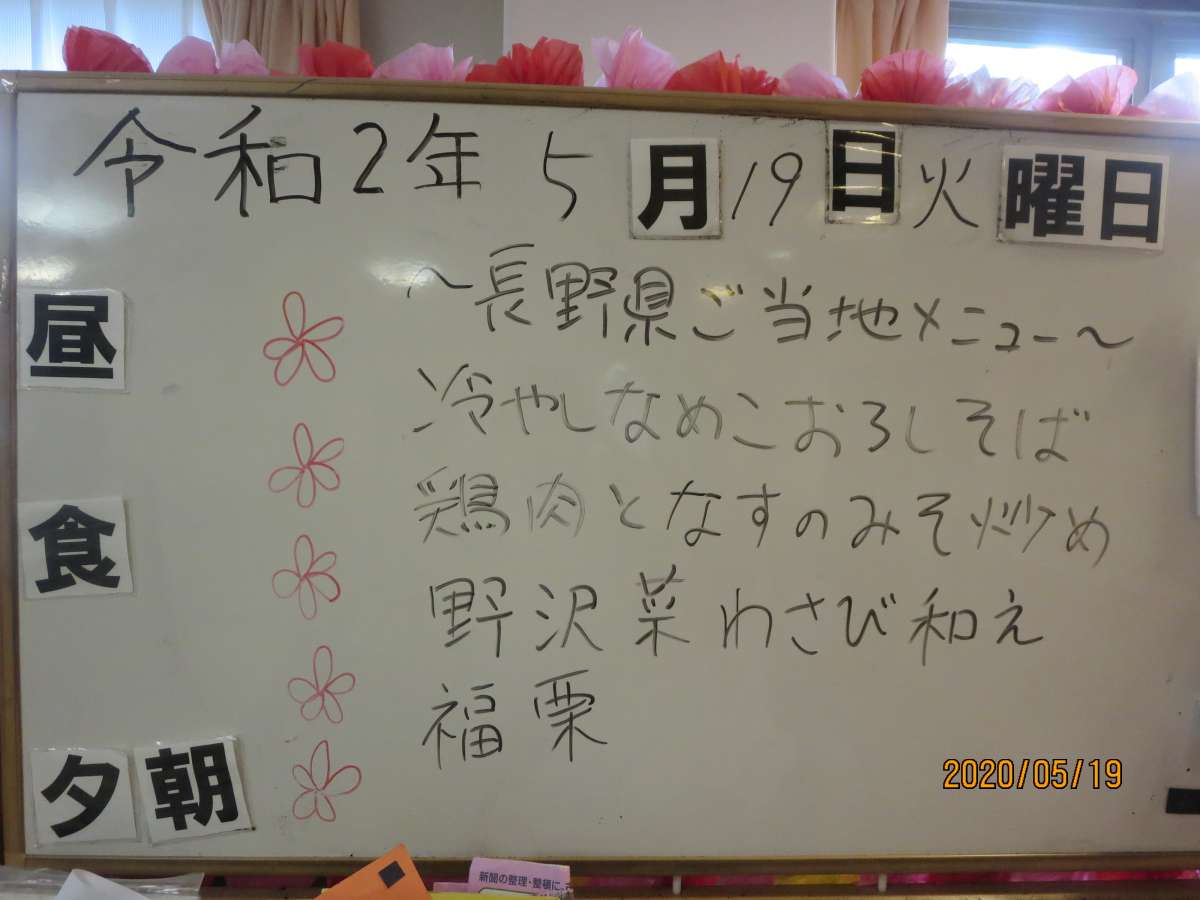 令和2年 5月19日火曜日
昼
食
夕朝
~長野県ご当地メニュー~
冷やしなめこおろしそば
鶏肉となすのみそ炒め
野沢菜わさび和え
福栗
2020/05/19
新聞の整理・整頓に